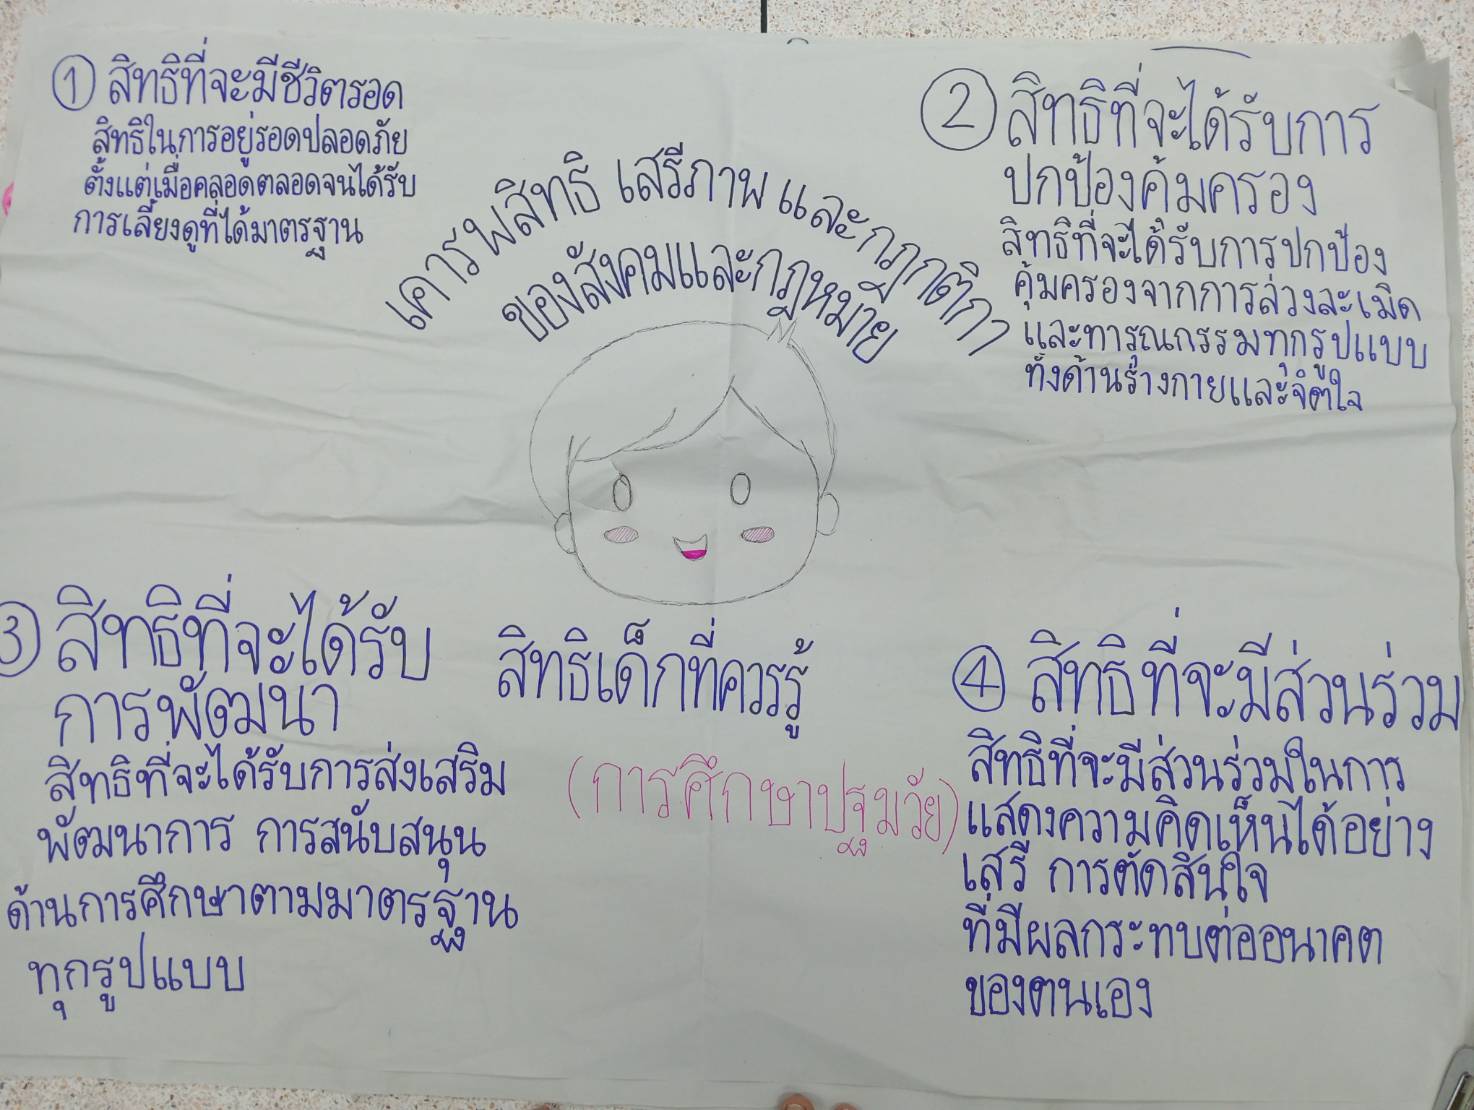 ① สิทธิที่จะมีชีวิตรอด
สิทธิในการอยู่รอดปลอดภัย
ตั้งแต่เมื่อคลอดตลอดจนได้รับ
การเลี้ยงดูที่ได้มาตรฐาน
เคารพสิทธิ เสรีภาพ และกฎกติกา
ของสังคมและกฎหมาย
② สิทธิที่จะได้รับการ
ปกป้องคุ้มครอง
สิทธิที่จะได้รับการปกป้อง
คุ้มครองจากการล่วงละเมิด
และทารุณกรรมทุกรูปแบบ
ทั้งด้านร่างกายและจิตใจ
③ สิทธิที่จะได้รับ
การพัฒนา
สิทธิที่จะได้รับการส่งเสริม
พัฒนาการ การสนับสนุน
ด้านการศึกษาตามมาตรฐาน
ทุกรูปแบบ
สิทธิเด็กที่ควรรู้
(การศึกษาปฐมวัย)
④ สิทธิที่จะมีส่วนร่วม
สิทธิที่จะมีส่วนร่วมในการ
แสดงความคิดเห็นได้อย่าง
เสรี การตัดสินใจ
ที่มีผลกระทบต่ออนาคต
ของตนเอง